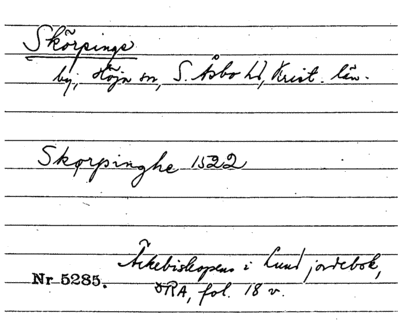 Skörpinge
by, Höja sn, S. Åsbo hd, Krist. län.
Skorpinghe 1522
Ärkebiskopens i Lund jordebok,
Nr 5285. DRA, fol. 18 v.